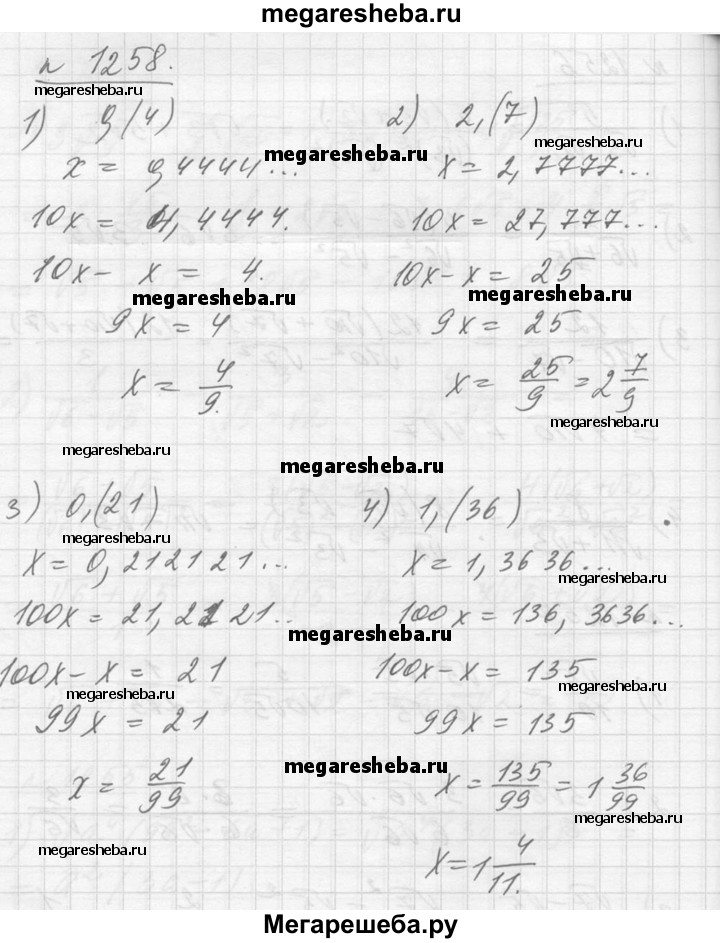 megaresheba.ru
n 1258.
megaresheba.ru
1) 0,(4)
x = 0,4444...
10x = 4,4444.
10x - x = 4.
megaresheba.ru
9x = 4
x = 4/9.
2) 2,(7)
megaresheba.ru
megaresheba.ru
x = 2,7777...
10x = 27,777...
10x - x = 25
megaresheba.ru
9x = 25
x = 25/9 = 2 7/9
megaresheba.ru
megaresheba.ru
megaresheba.ru
3) 0,(21)
megaresheba.ru
x = 0,212121...
100x = 21,2121..
megaresheba.ru
100x - x = 21
megaresheba.ru
99x = 21
x = 21/99
megaresheba.ru
megaresheba.ru
4) 1,(36)
x = 1,3636...
megaresheba.ru
100x = 136,3636...
100x - x = 135
megaresheba.ru
99x = 135
x = 135/99 = 1 36/99
megaresheba.ru
x = 1 4/11.
Мегарешеба.ру